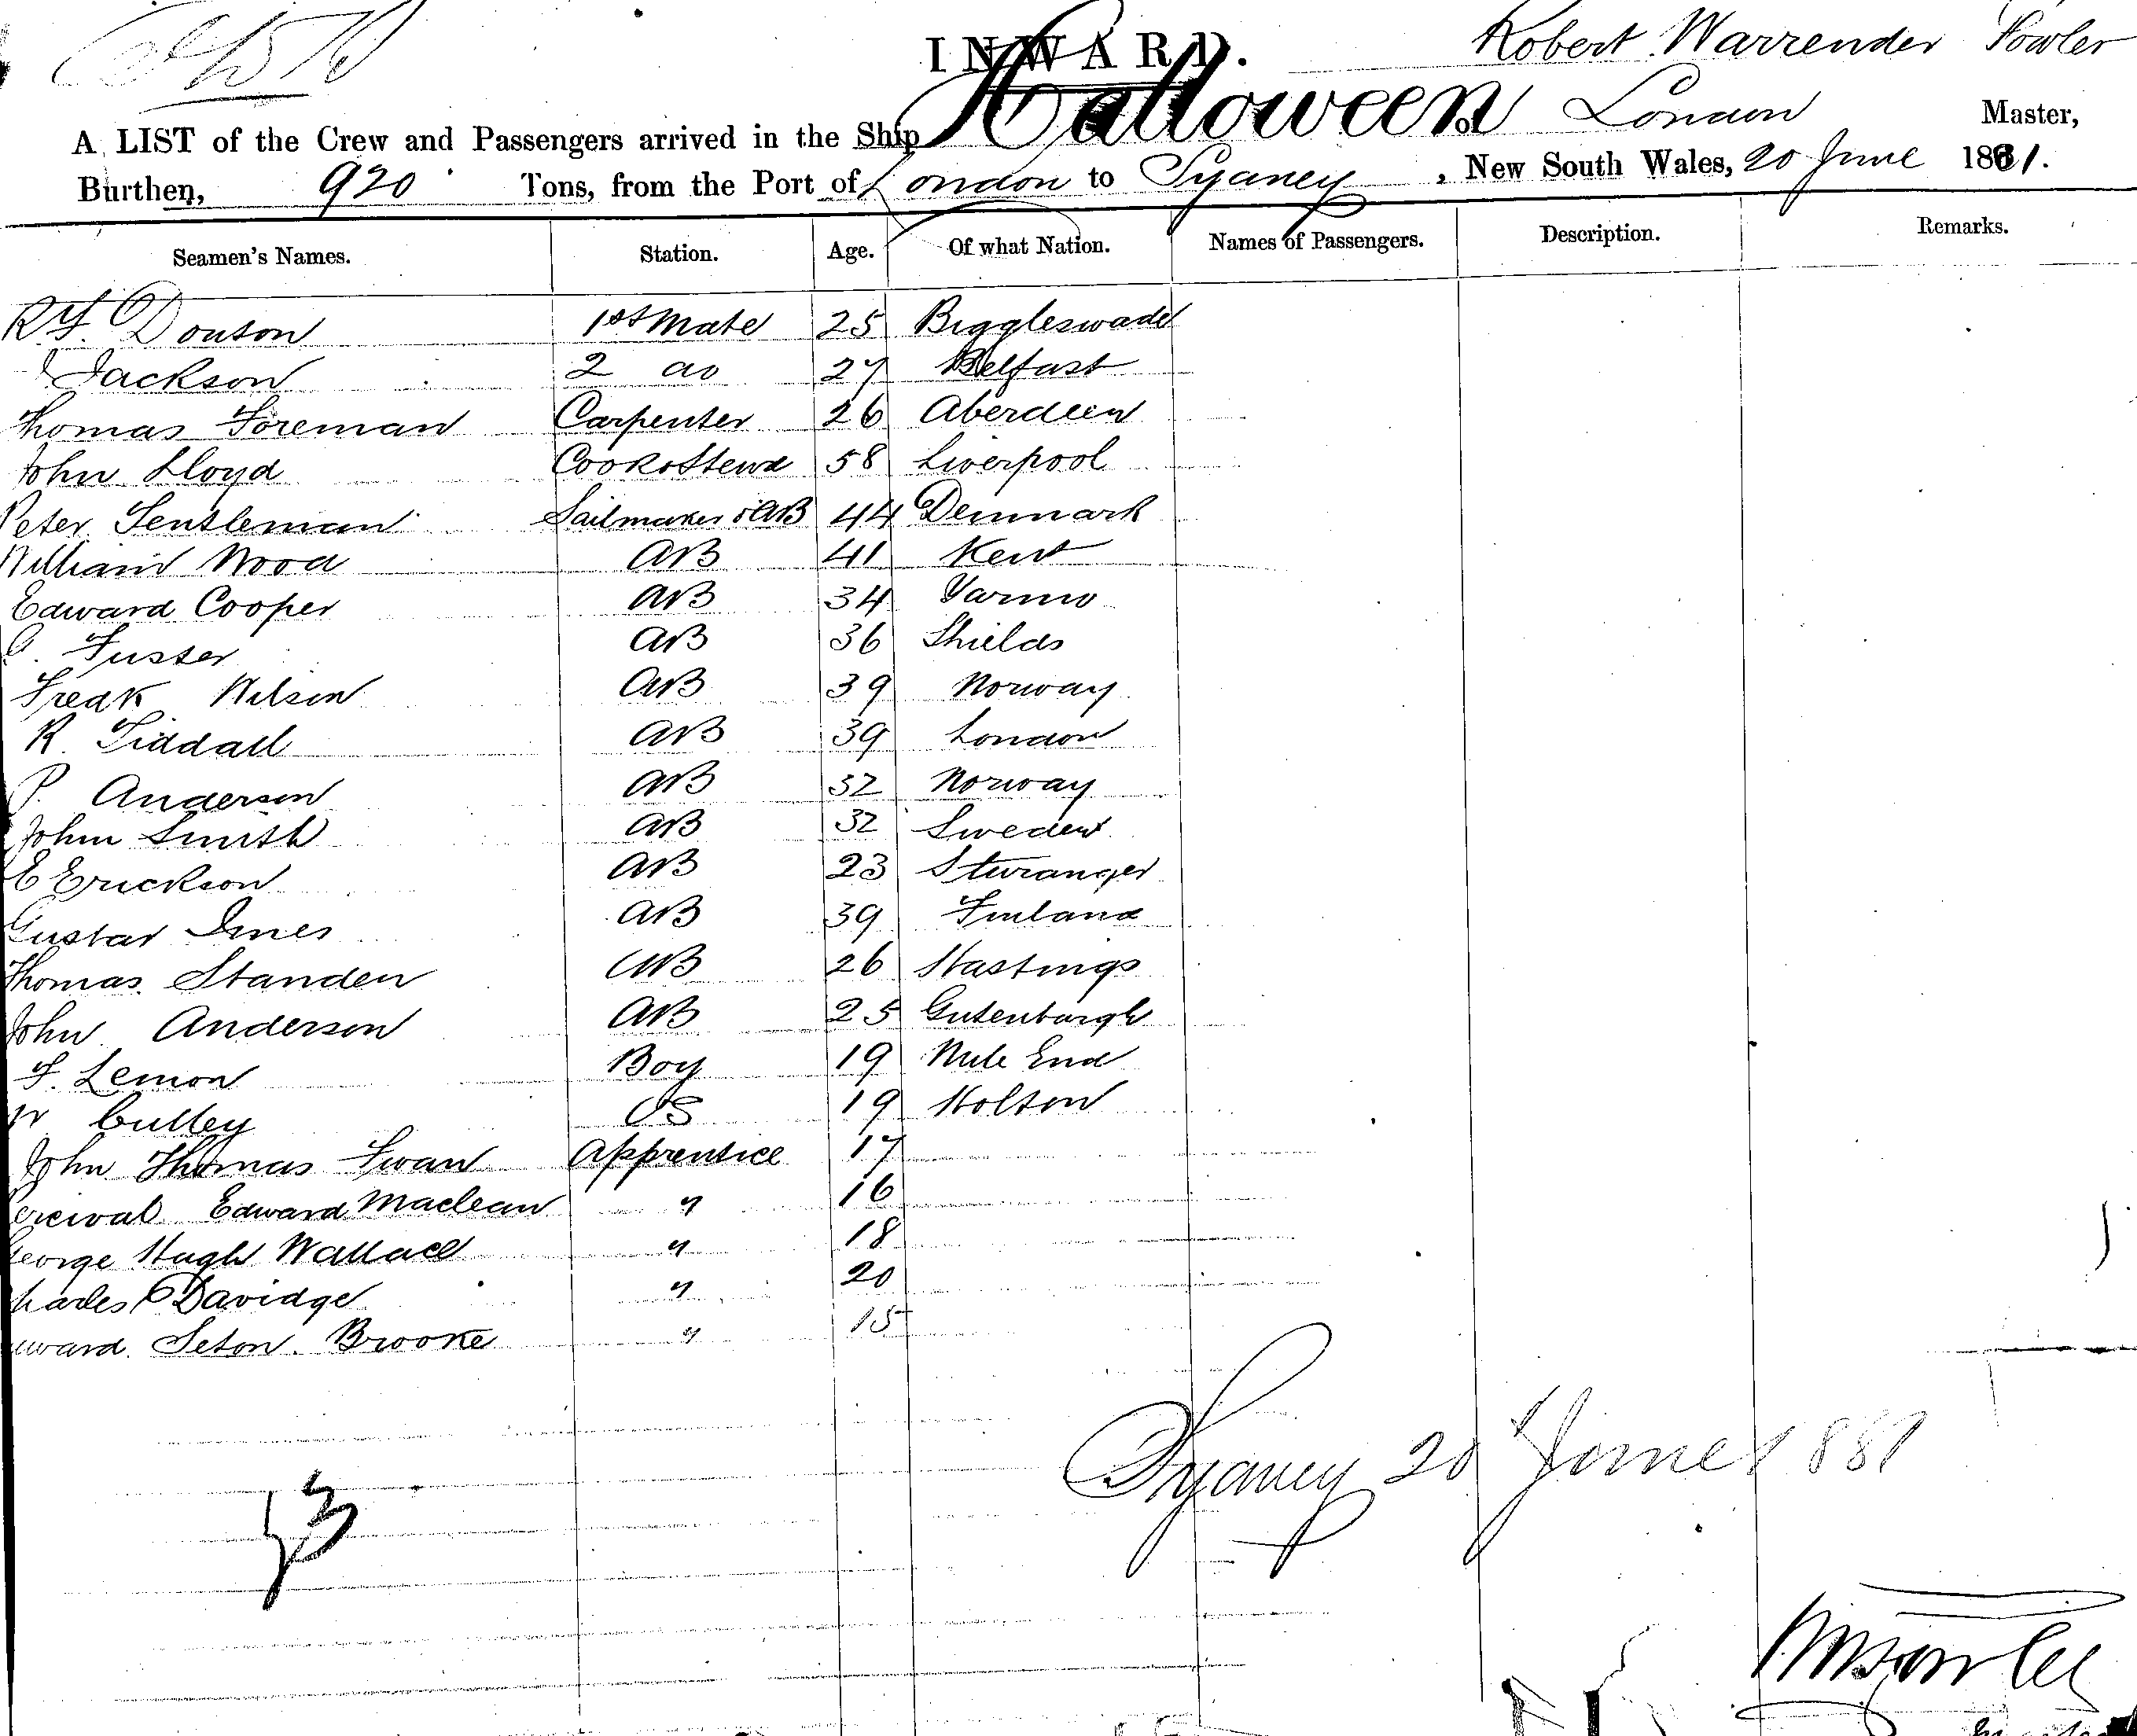 INWARD. Robert Warrender Fowler
A LIST of the Crew and Passengers arrived in the Ship Halloween of London Master,
Burthen, 920 Tons, from the Port of London to Sydney, New South Wales, 20 June 1881.
Seamen's Names. Station. Age. Of what Nation. Names of Passengers. Description. Remarks.
R F Douton 1st Mate 25 Biggleswade
J Jackson 2 do 27 Belfast
Thomas Foreman Carpenter 26 Aberdeen
John Lloyd Cook & Stewd 58 Liverpool
Peter Gentleman Sailmaker & AB 44 Denmark
William Wood AB 41 Kent
Edward Cooper AB 34 Yarmo
G. Fuster AB 36 Shields
Fredk Nilsen AB 39 Norway
R. Tiddall AB 39 London
P. Anderson AB 32 Norway
John Smith AB 32 Sweden
E Erickson AB 23 Sturanger
Gustav Ines AB 39 Finland
Thomas Standen AB 26 Hastings
John Anderson AB 25 Gutenburgh
F. Lemon Boy 19 Mile End
W Culley OS 19 Holton
John Thomas Swan Apprentice 17
Percival Edward Maclean " 16
George Hugh Wallace " 18
Charles Davidge " 20
Edward Seton Brooke " 15
Sydney 20 June 1881
23
RWFowler